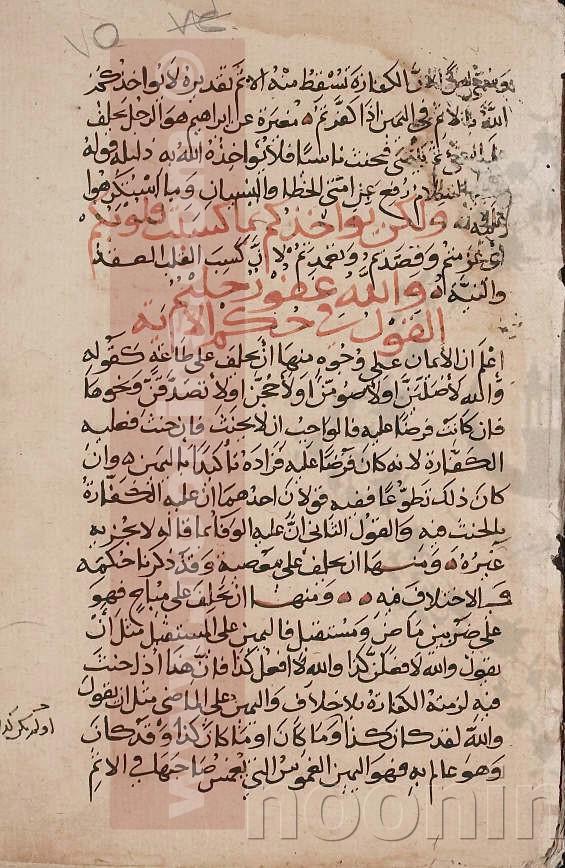 الكفارة تسقط منه الاثم تقديره لا يواخذكم
الله بالاثم في اليمين اذا كفرتم مغيرة عن ابراهيم هو الرجل يحلف
فيحنث ناسيا فلا يواخذه الله به دليله قوله
السلام رفع عن امتي الخطا والنسيان وما استكرهوا
عليه ولكن يواخذكم بما كسبت قلوبكم
اي عزمتم وقصدتم وتعمدتم لان كسب القلب العقد
والنية والله غفور حليم
القول في حكم الاية
اعلم ان الايمان على وجوه منها ان يحلف على طاعة كقوله
والله لاصلين او لاصومن او لاحجن او لاتصدقن ونحوها
فان كانت فرضا عليه فالواجب ان لا يحنث فان حنث فعليه
الكفارة لانه كان فرضا عليه فزاده تاكيدا باليمين وان
كان ذلك تطوعا ففيه قولان احدهما ان عليه الكفارة
بالحنث فيه والقول الثاني ان عليه الوفا بما قاله ولا يجزيه
غيره ومنها ان يحلف على معصية وقد ذكرنا حكمه
والاختلاف فيه ومنها ان يحلف على مباح فهو
على ضربين ماض ومستقبل فاليمين على المستقبل مثل ان
يقول والله لافعلن كذا والله لا افعل كذا فان هذا اذا حنث
فيه لزمته الكفارة بلا خلاف واليمين على الماضي مثل ان يقول
والله لقد كان كذا وما كان او ما كان كذا وقد كان
وهو عالم به فهو اليمين الغموس التي تغمس صاحبها في الاثم
او لم يكن كذا
noorin